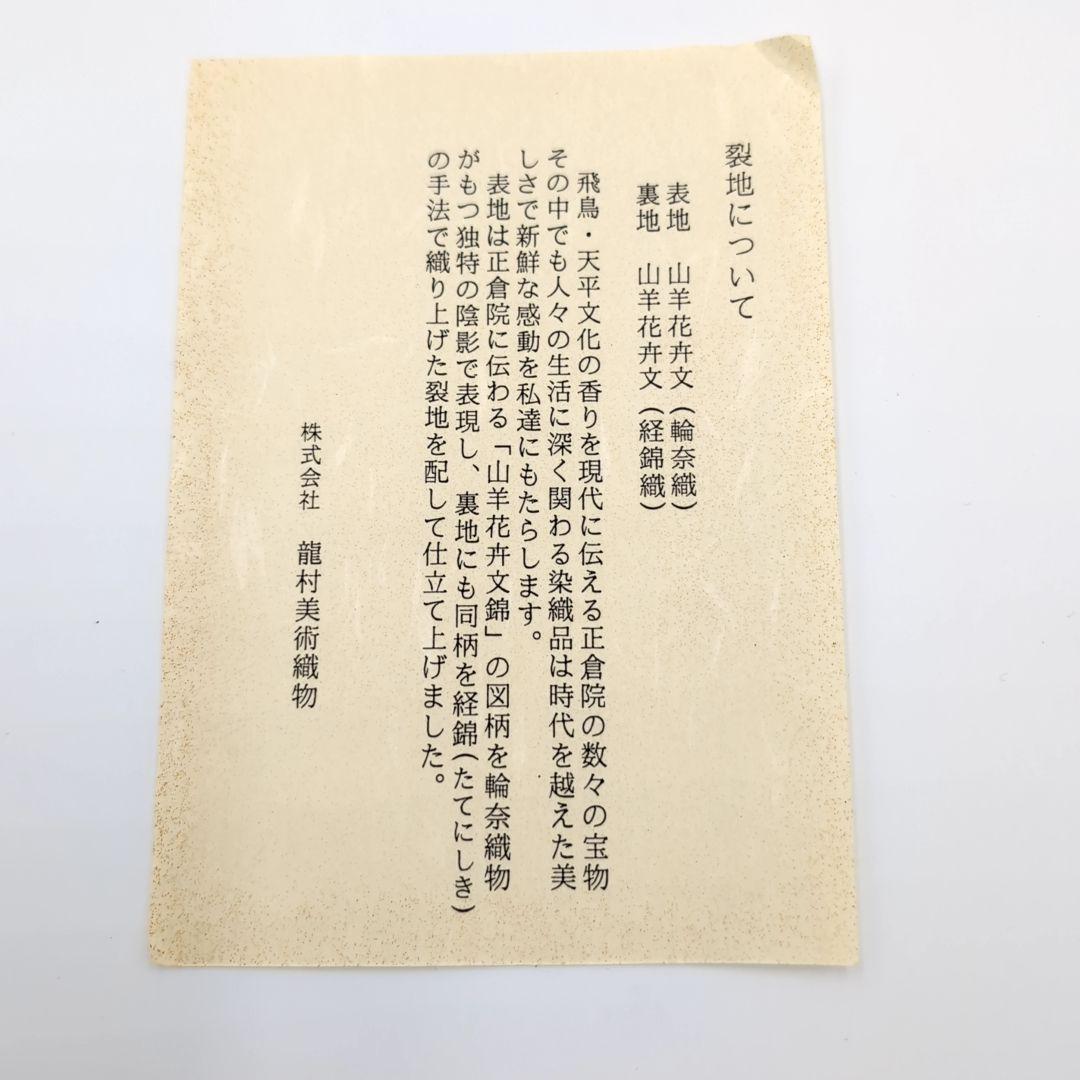 裂地について
表地　山羊花卉文（輪奈織）
裏地　山羊花卉文（経錦織）
飛鳥・天平文化の香りを現代に伝える正倉院の数々の宝物
その中でも人々の生活に深く関わる染織品は時代を越えた美
しさで新鮮な感動を私達にもたらします。
表地は正倉院に伝わる「山羊花卉文錦」の図柄を輪奈織物
がもつ独特の陰影で表現し、裏地にも同柄を経錦（たてにしき）
の手法で織り上げた裂地を配して仕立て上げました。
株式会社　龍村美術織物